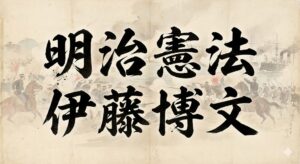 明治憲法
伊藤博文